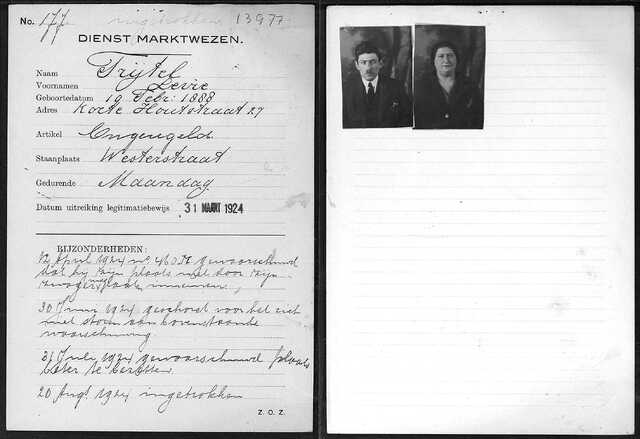 No. 177 ingetrokken 13977
DIENST MARKTWEZEN.
Naam Trijtel
Voornamen Levie
Geboortedatum 19 Febr: 1888
Adres Korte Houtstraat 27
Artikel Ongeregeld
Staanplaats Westerstraat
Gedurende Maandag
Datum uitreiking legitimatiebewijs 31 MAART 1924
BIJZONDERHEDEN:
12 April 1924 no 460 gewaarschuwd
dat hij zijn plaats niet door zijn
zwager laat innemen,
30 Juni 1924 geschorst voor het zich
niet storen aan bovenstaande
waarschuwing
31 Juli 1924 gewaarschuwd plaats
beter te bezetten
20 Augt 1924 ingetrokken
Z. O. Z.